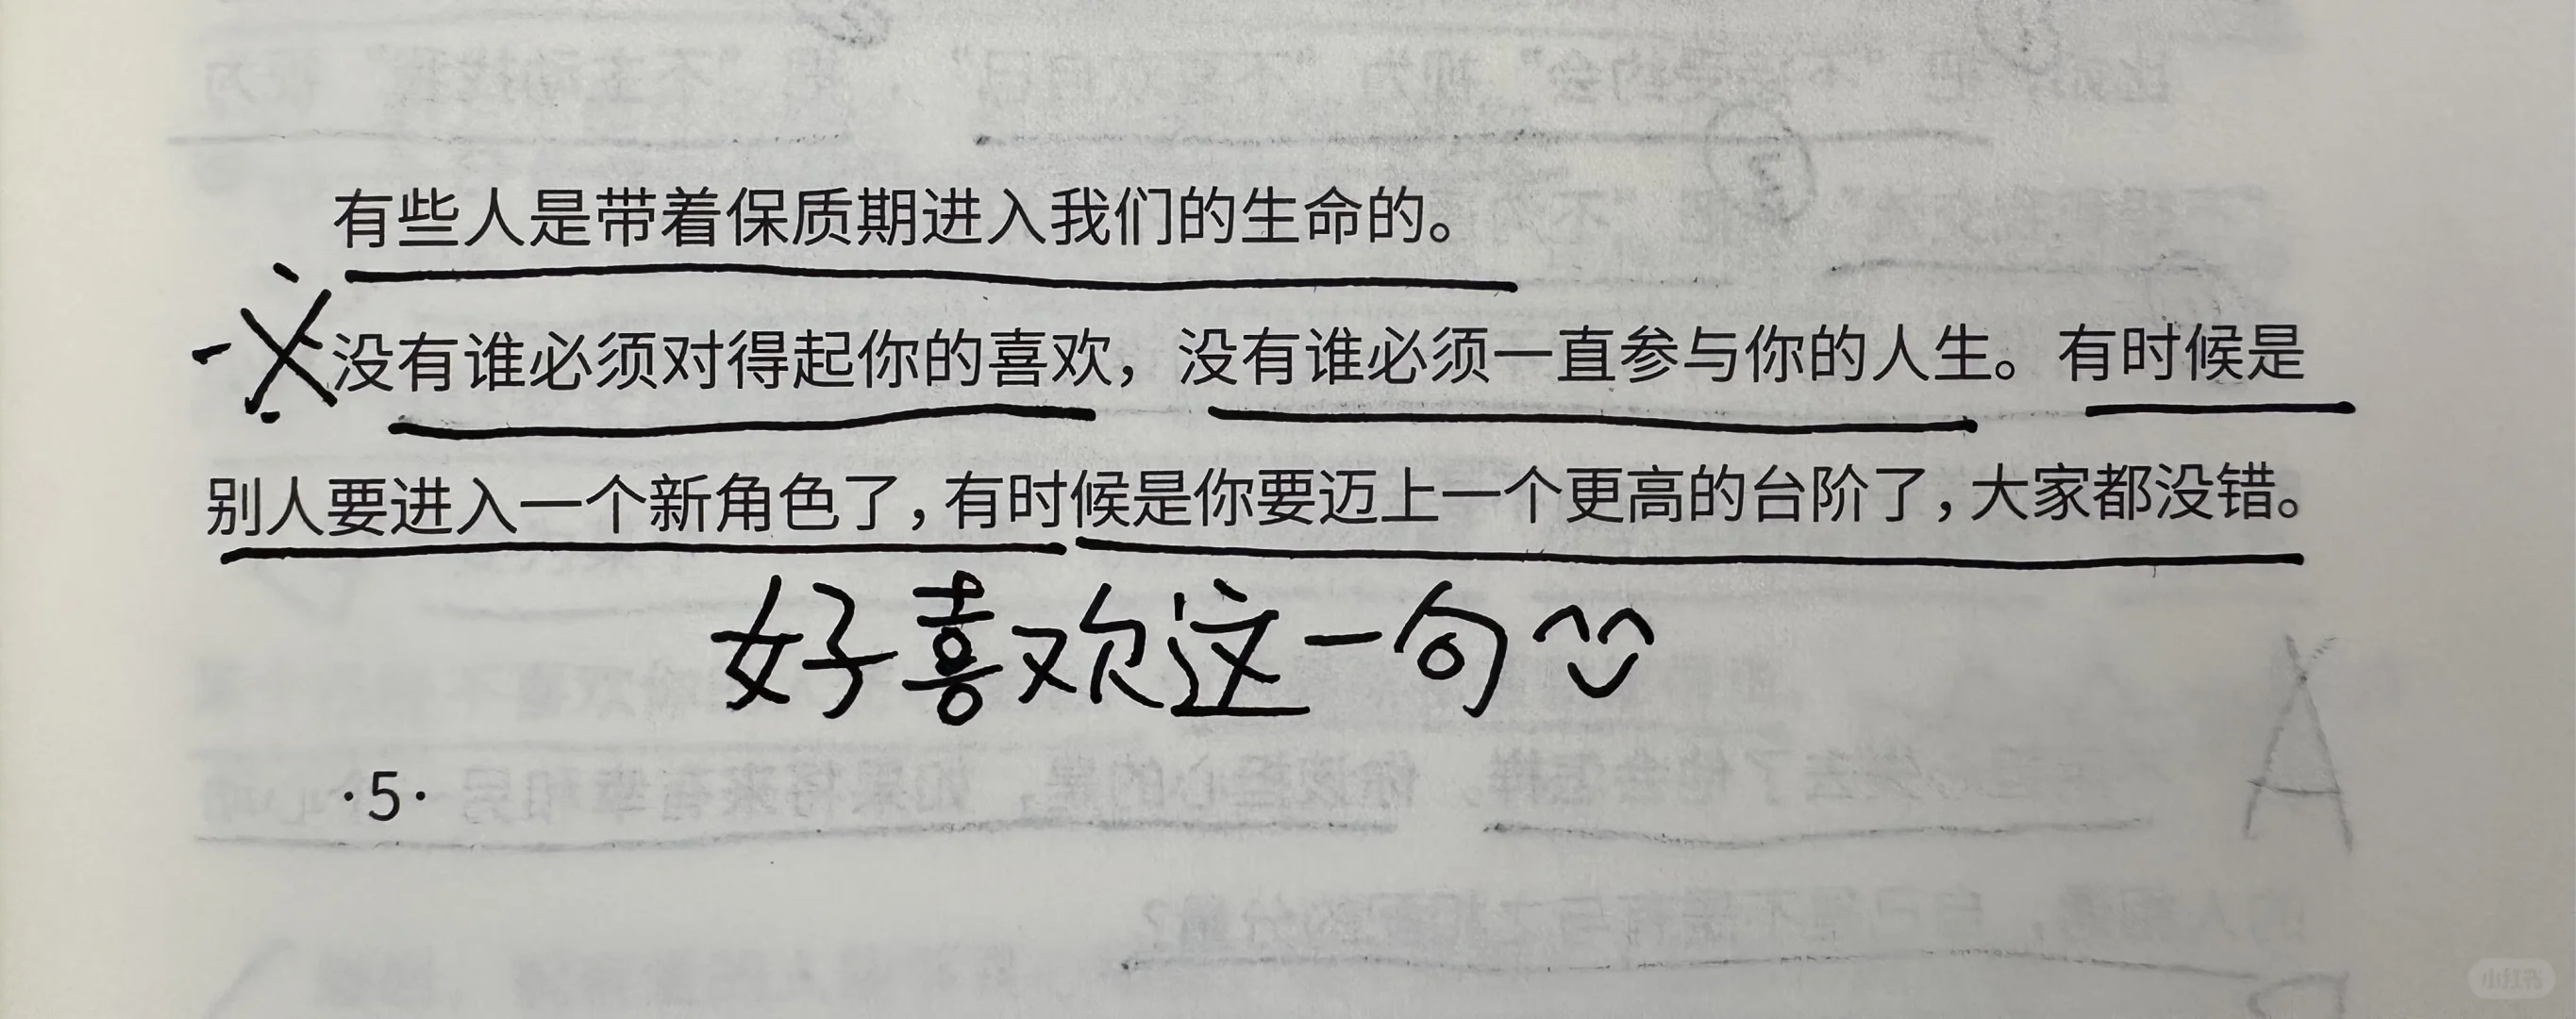 有些人是带着保质期进入我们的生命的。
没有谁必须对得起你的喜欢，没有谁必须一直参与你的人生。有时候是
别人要进入一个新角色了，有时候是你要迈上一个更高的台阶了，大家都没错。
好喜欢这一句
·5·
小红书